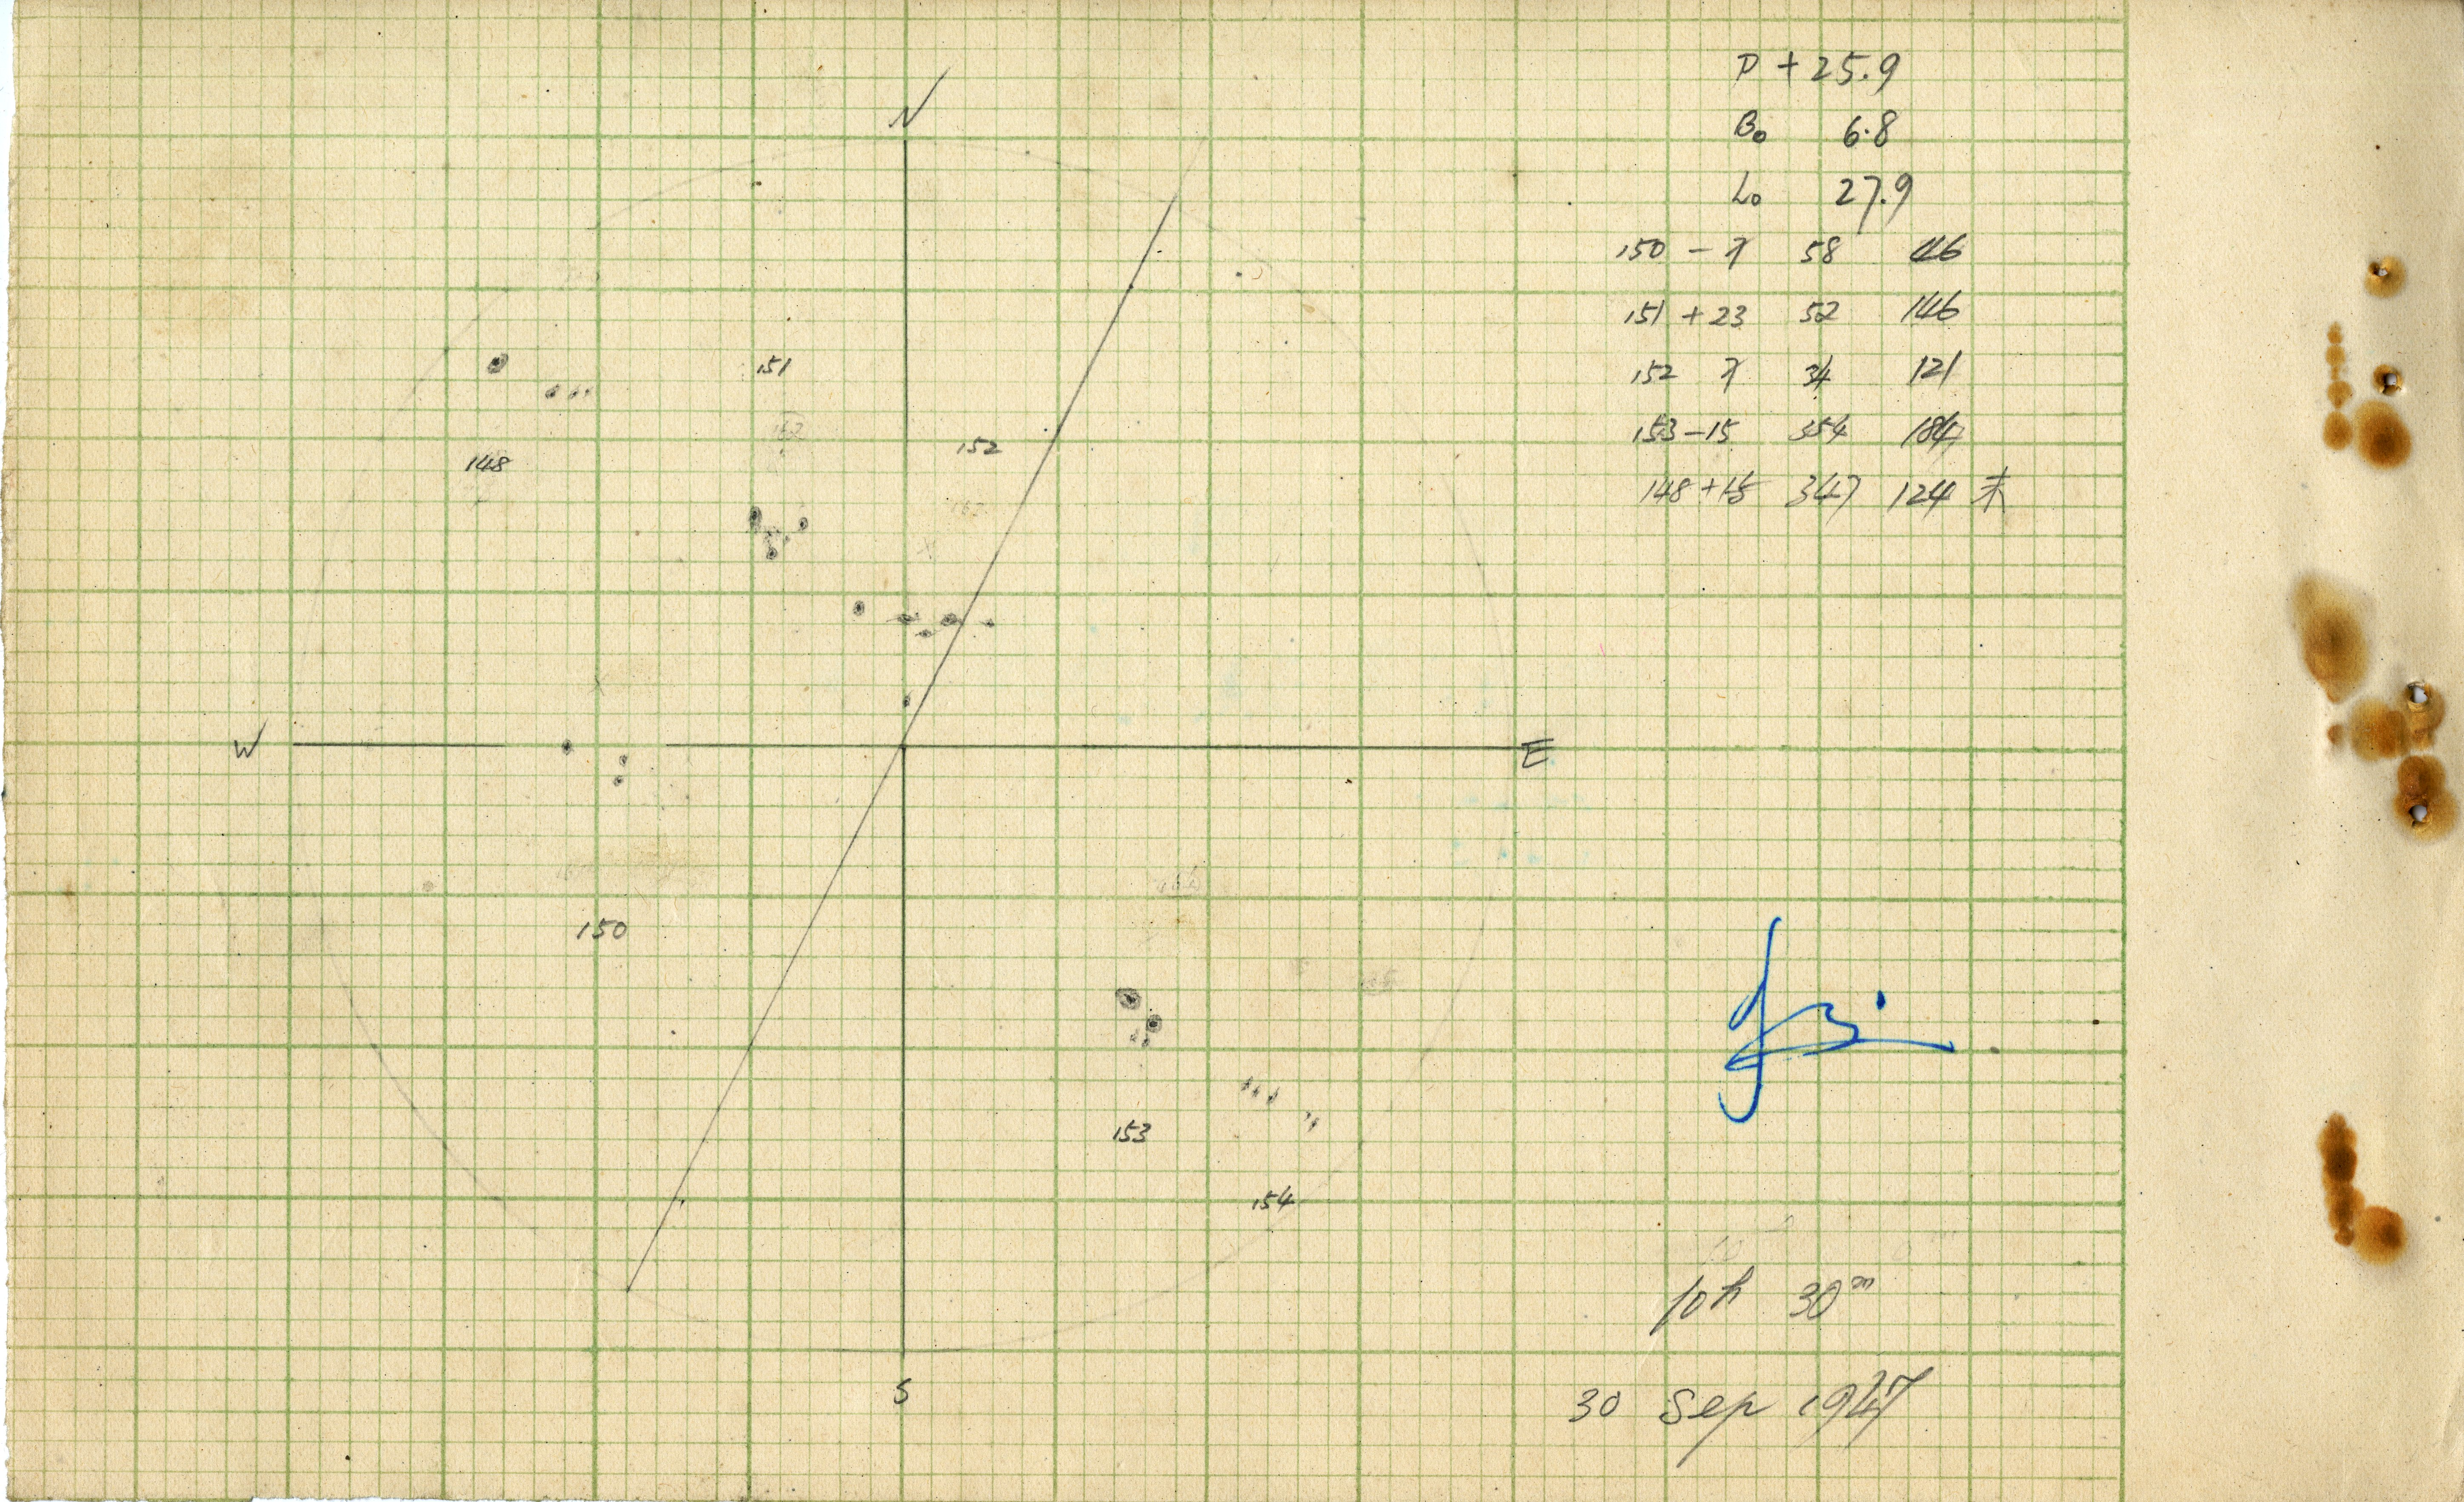 N
P + 25.9
B₀ 6.8
L₀ 27.9
150 - 7 58 46
151 + 23 52 146
152 7 34 121
153 - 15 354 184
148 + 15 347 124
151
152
148
W
E
150
153
154
10h 30m
S
30 Sep 1947